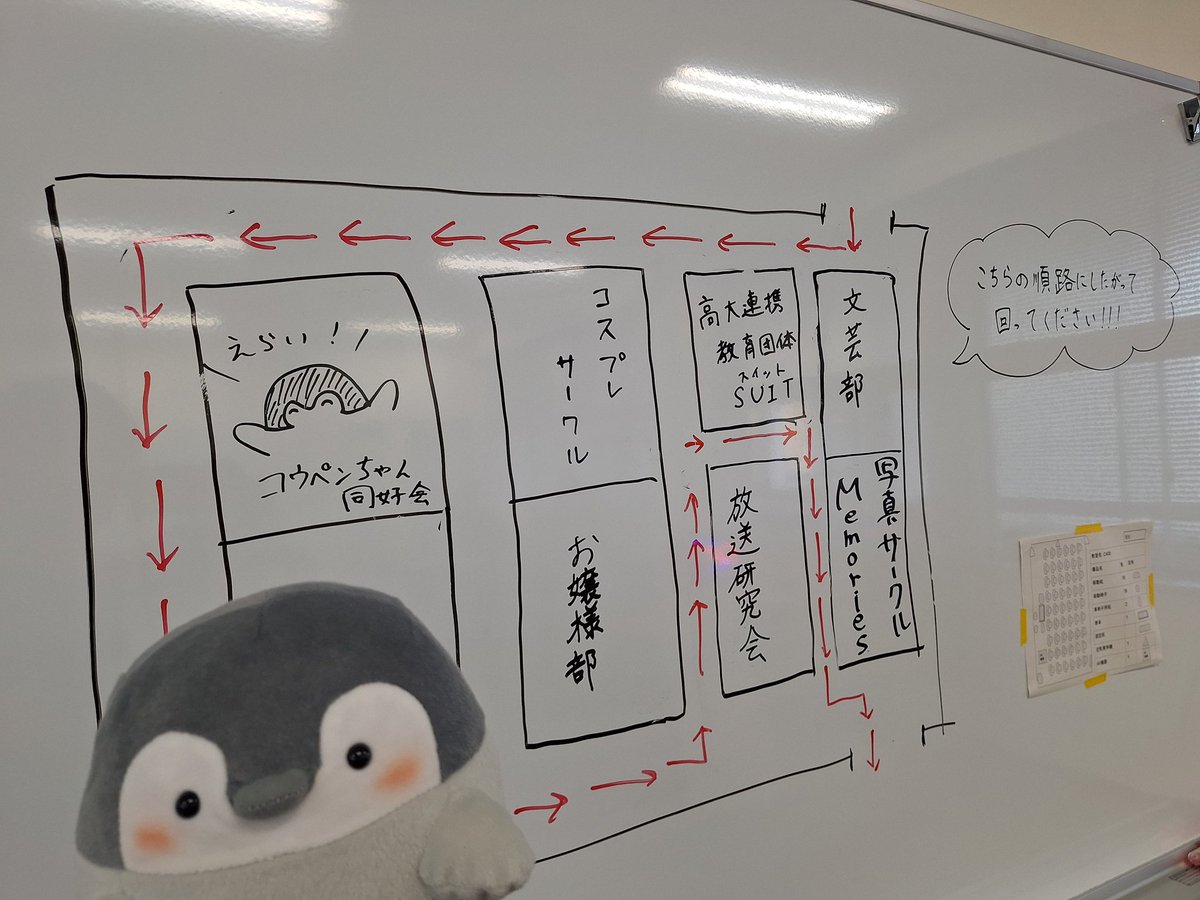 えらい!!
コウペンちゃん
同好会
コスプレ
サークル
お嬢様部
高大連携
教育団体
スイット
SUIT
放送研究会
文芸部
写真サークル
Memories
こちらの順路にしたがって
回ってください!!!